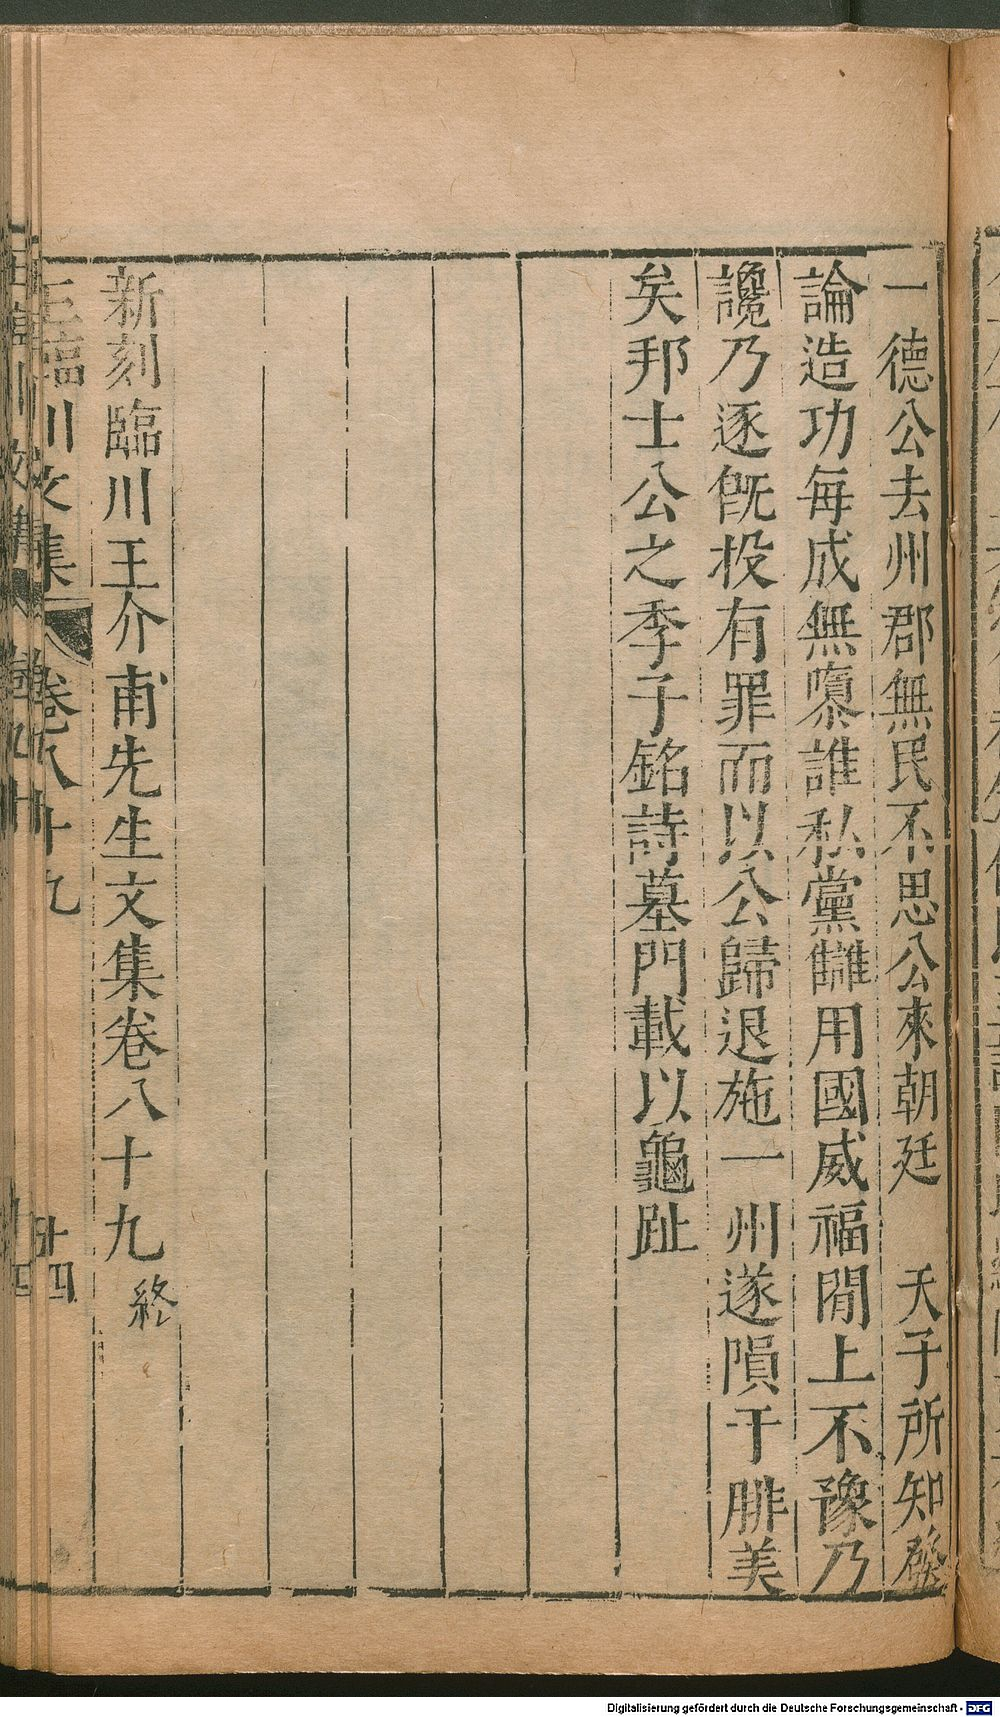 一德公去州郡無民不思公來朝廷　天子所知發
論造功每成無隳誰私黨讎用國威福閒上不豫乃
讒乃逐旣投有罪而以公歸退施一州遂隕于腓美
矣邦士公之季子銘詩墓門載以龜趾
新刻臨川王介甫先生文集卷八十九終
王臨川文集　卷八十九　十四
Digitalisierung gefördert durch die Deutsche Forschungsgemeinschaft - DFG